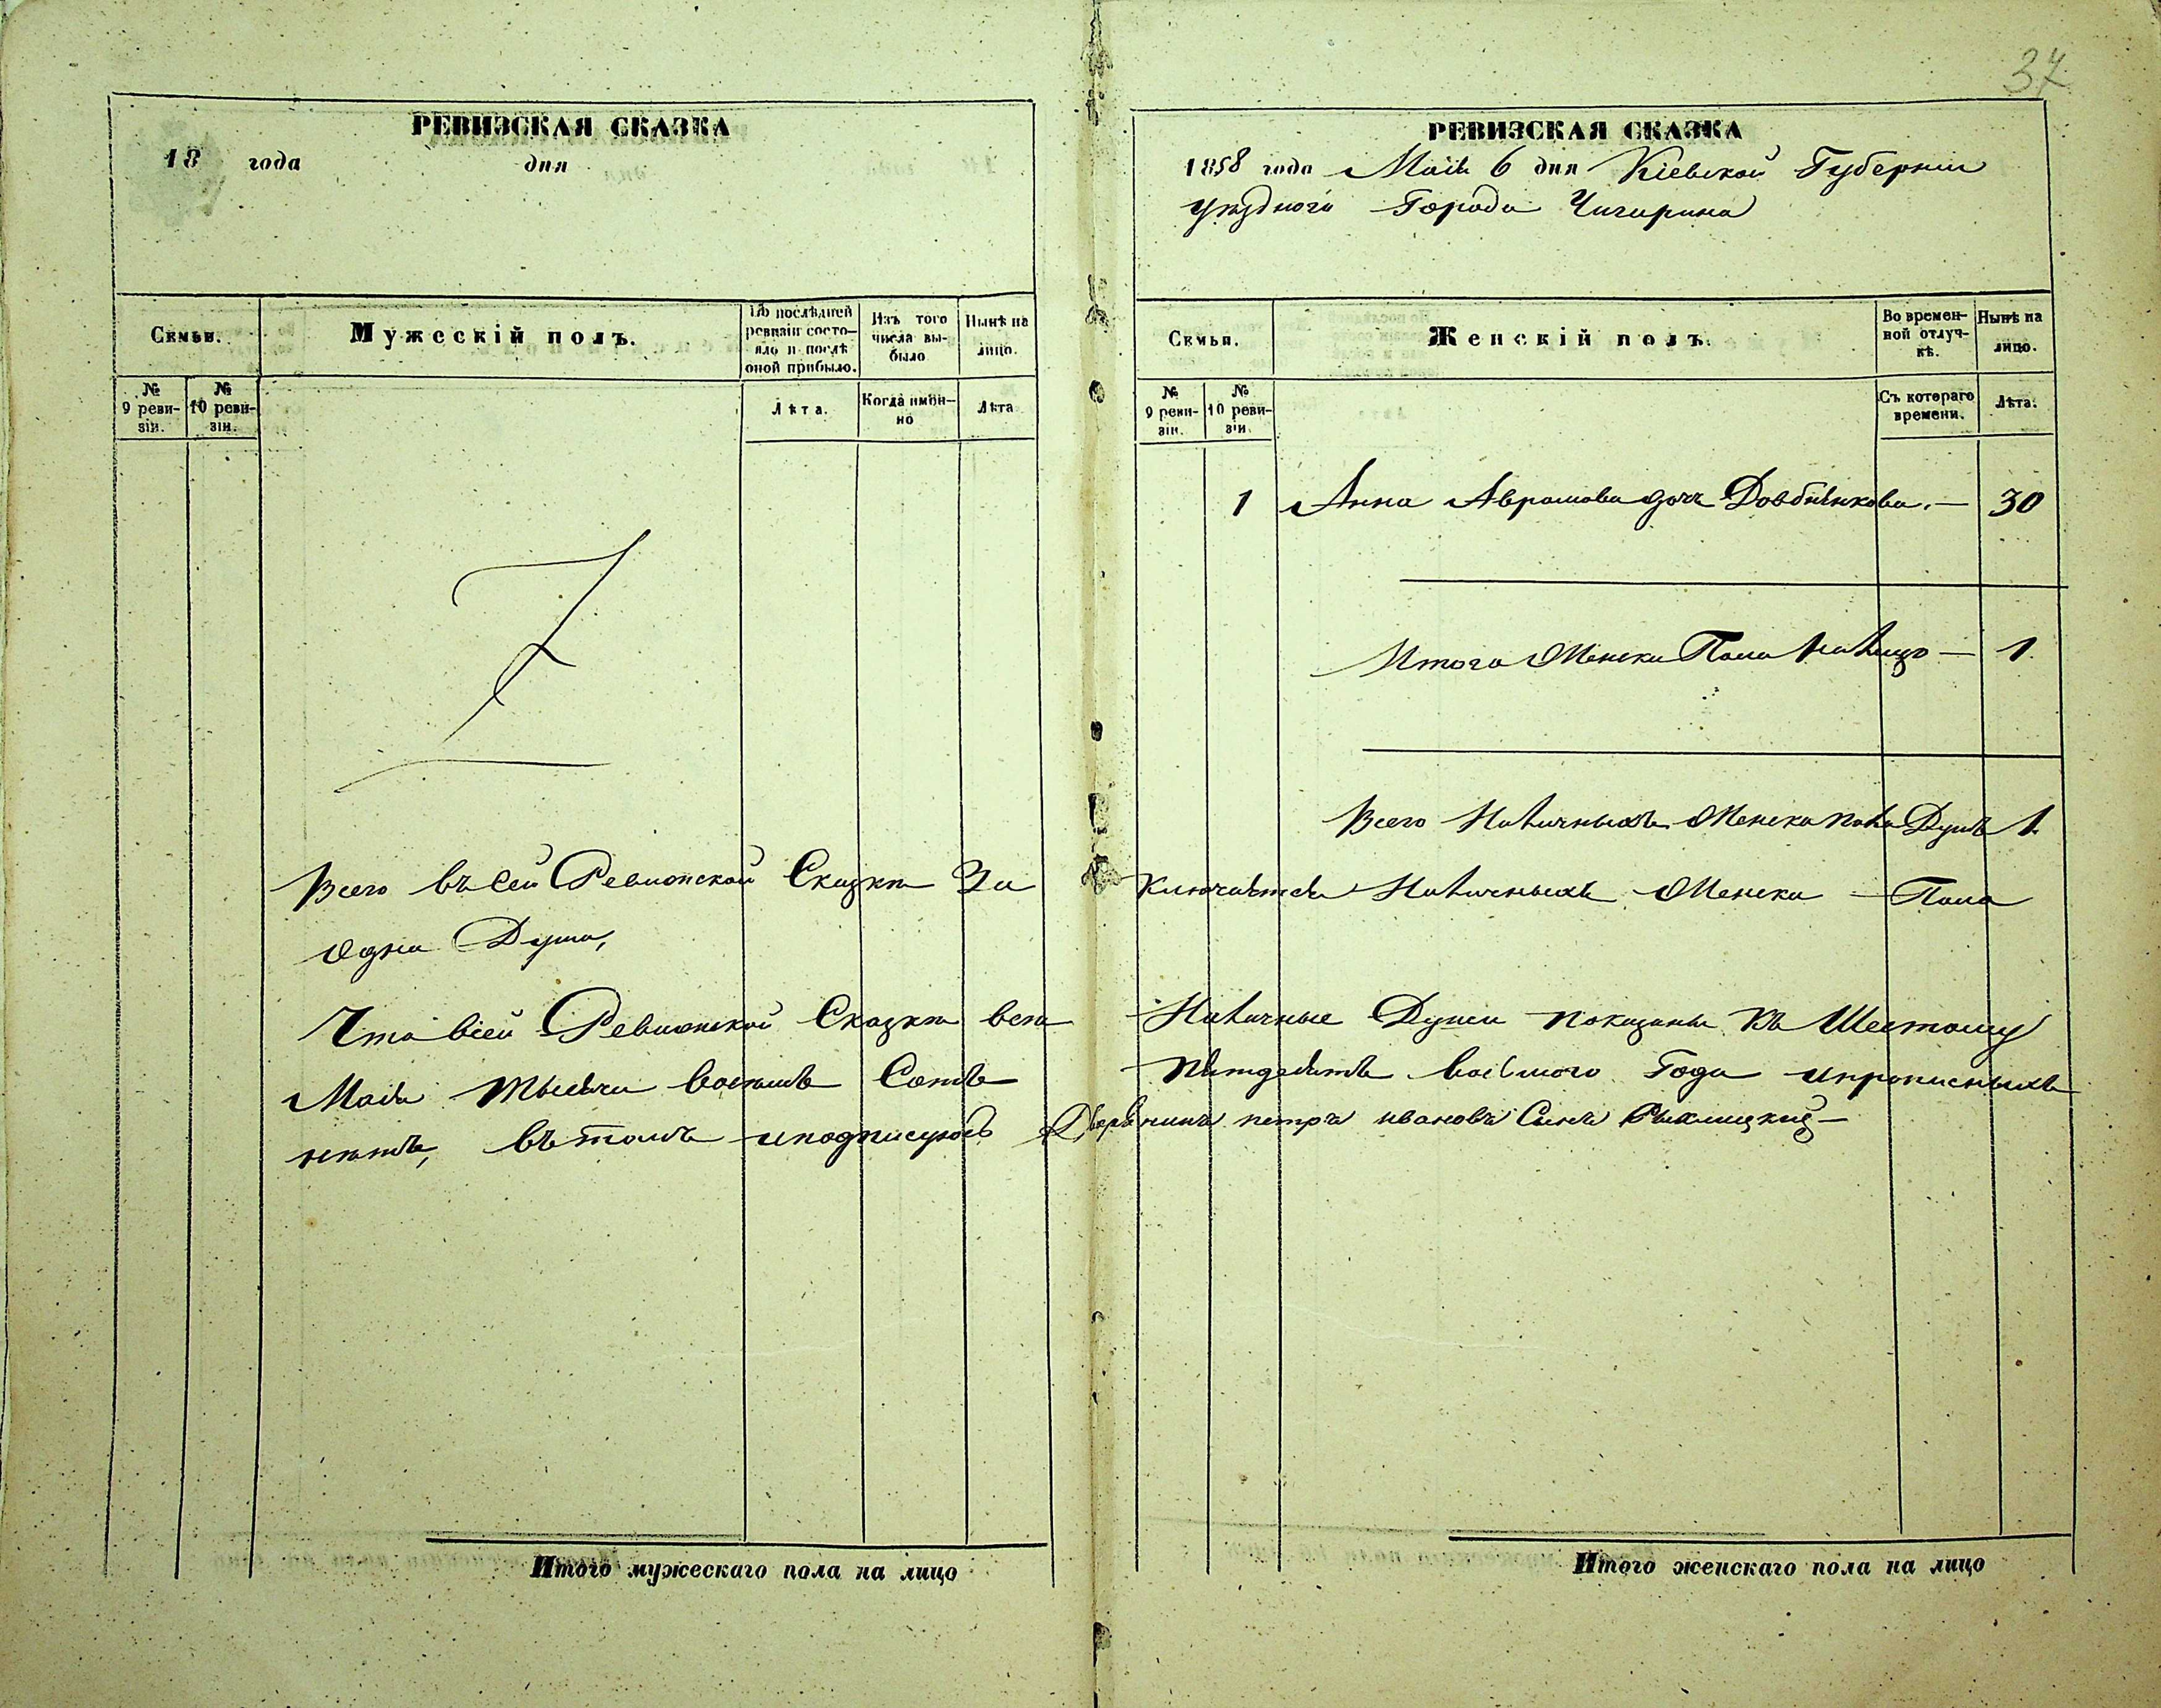 37
РЕВИЗСКАЯ СКАЗКА
18 года дня
Семьи.
Мужескій полъ.
По послѣдней ревизіи состояло и послѣ оной прибыло.
Изъ того числа выбыло
Нынѣ на лицо.
№ 9 ревизіи.
№ 10 ревизіи.
Лѣта.
Когда именно
Лѣта
РЕВИЗСКАЯ СКАЗКА
1858 года Маія 6 дня Кіевской Губерніи
уѣзднаго Города Чигирина
Семьи.
Женскій полъ.
Во временной отлучкѣ.
Нынѣ на лицо.
№ 9 ревизіи.
№ 10 ревизіи
Съ котораго времени.
Лѣта.
1 Анна Аврамова дочь Довбнѣнкова. — 30
Итого Женска Пола на лицо — 1
Всего Наличныхъ Женска пола Душъ 1.
Всего въ сей Ревизской Сказкѣ За ключается Наличныхъ Женска Пола
одна Душа,
Что всей Ревизской Сказкѣ всѣ Наличные Души показаны къ Шестому
Маія тысяча восемь Сотъ пятдесятъ восьмого Года ипрописныхъ
нѣтъ, въ томъ иподписуюсь Дворянинъ петръ ивановъ Сынъ
Итого мужескаго пола на лицо
Итого женскаго пола на лицо